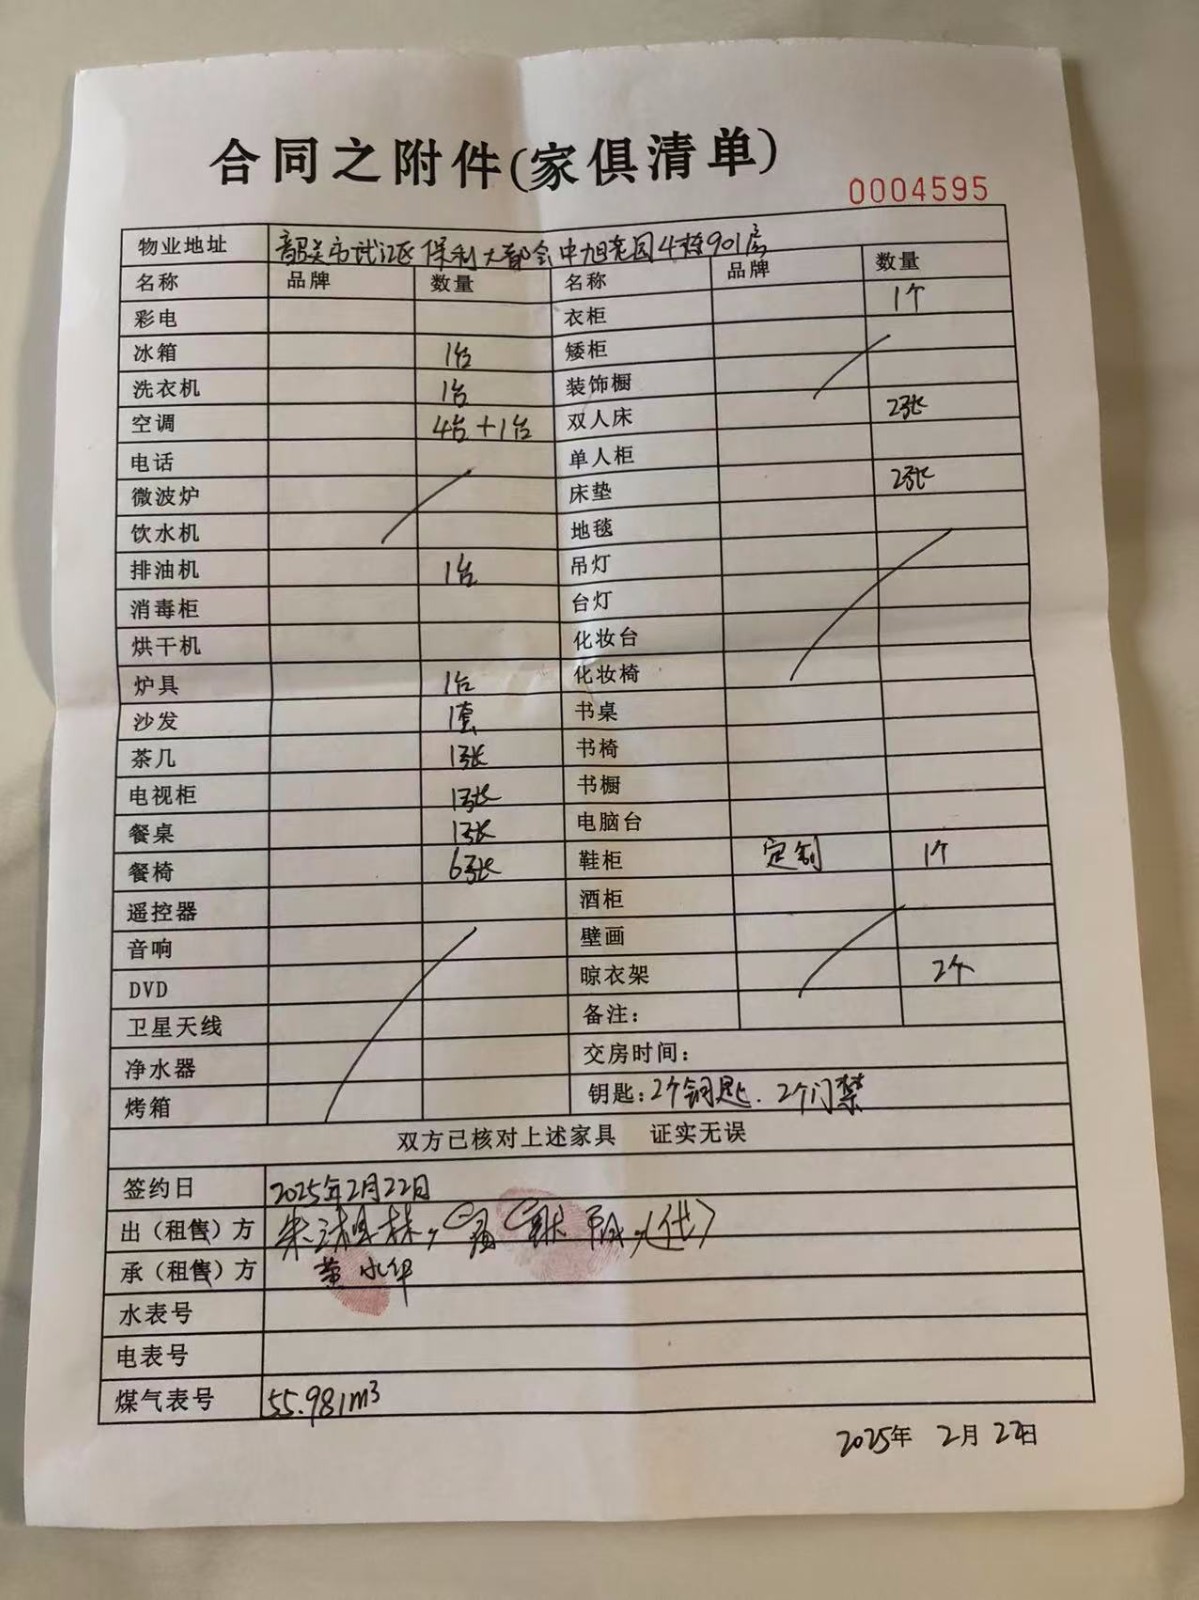 合同之附件(家俱清单)
0004595
物业地址 韶关市武江区保利大都会中旭亮园4栋901房
名称 品牌 数量 名称 品牌 数量
彩电 衣柜 1个
冰箱 1台 矮柜
洗衣机 1台 装饰橱
空调 4台+1台 双人床 2张
电话 单人柜
微波炉 床垫 2张
饮水机 地毯
排油机 1台 吊灯
消毒柜 台灯
烘干机 化妆台
炉具 1台 化妆椅
沙发 1套 书桌
茶几 1张 书椅
电视柜 1张 书橱
餐桌 1张 电脑台
餐椅 6张 鞋柜 定制 1个
遥控器 酒柜
音响 壁画
DVD 晾衣架 2个
卫星天线 备注:
净水器 交房时间:
烤箱 钥匙:2个钥匙. 2个门禁
双方已核对上述家具 证实无误
签约日 2025年2月22日
出(租售)方 (代)
承(租售)方 黄水华
水表号
电表号
煤气表号 55.981m³
2025年 2月 22日